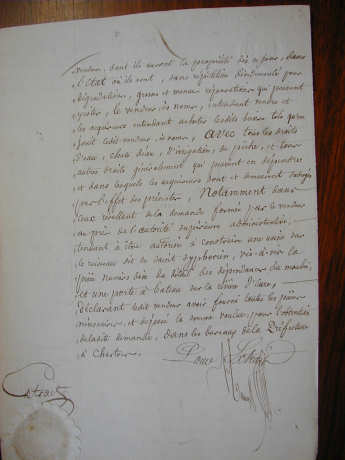 vendus, dont ils auront la propriété dès ce jour, dans
l'état où ils sont, sans répétition d'indemnité pour
dégradations, grosses et menues réparations qui peuvent
exister, le vendeur, ès noms, entendant vendre et
les acquéreurs entendant acheter lesdits biens tels qu'en
jouit ledit vendeur, ès noms, avec tous les droits
d'eau, chute d'eau, d'irrigation, de pêche, et tous
autres droits généralement qui peuvent en dépendre
et dans lesquels les acquéreurs sont et demeurent subrogés
par l'effet des présentes, notamment dans
ceux résultant de la demande formée par le vendeur
auprès de l'autorité supérieure administrative,
tendant à être autorisé à construire une usine sur
le ruisseau dit de Saint vis-à-vis la
pièce numéro dix du détail des dépendances du moulin,
et une porte à bateau sur la rivière d'Eure,
déclarant ledit vendeur avoir fourni toutes les pièces
nécessaires, et déposé la somme voulue, pour l'obtention
de ladite demande, dans les bureaux de la Préfecture
à Chartres.
Pour
Extrait